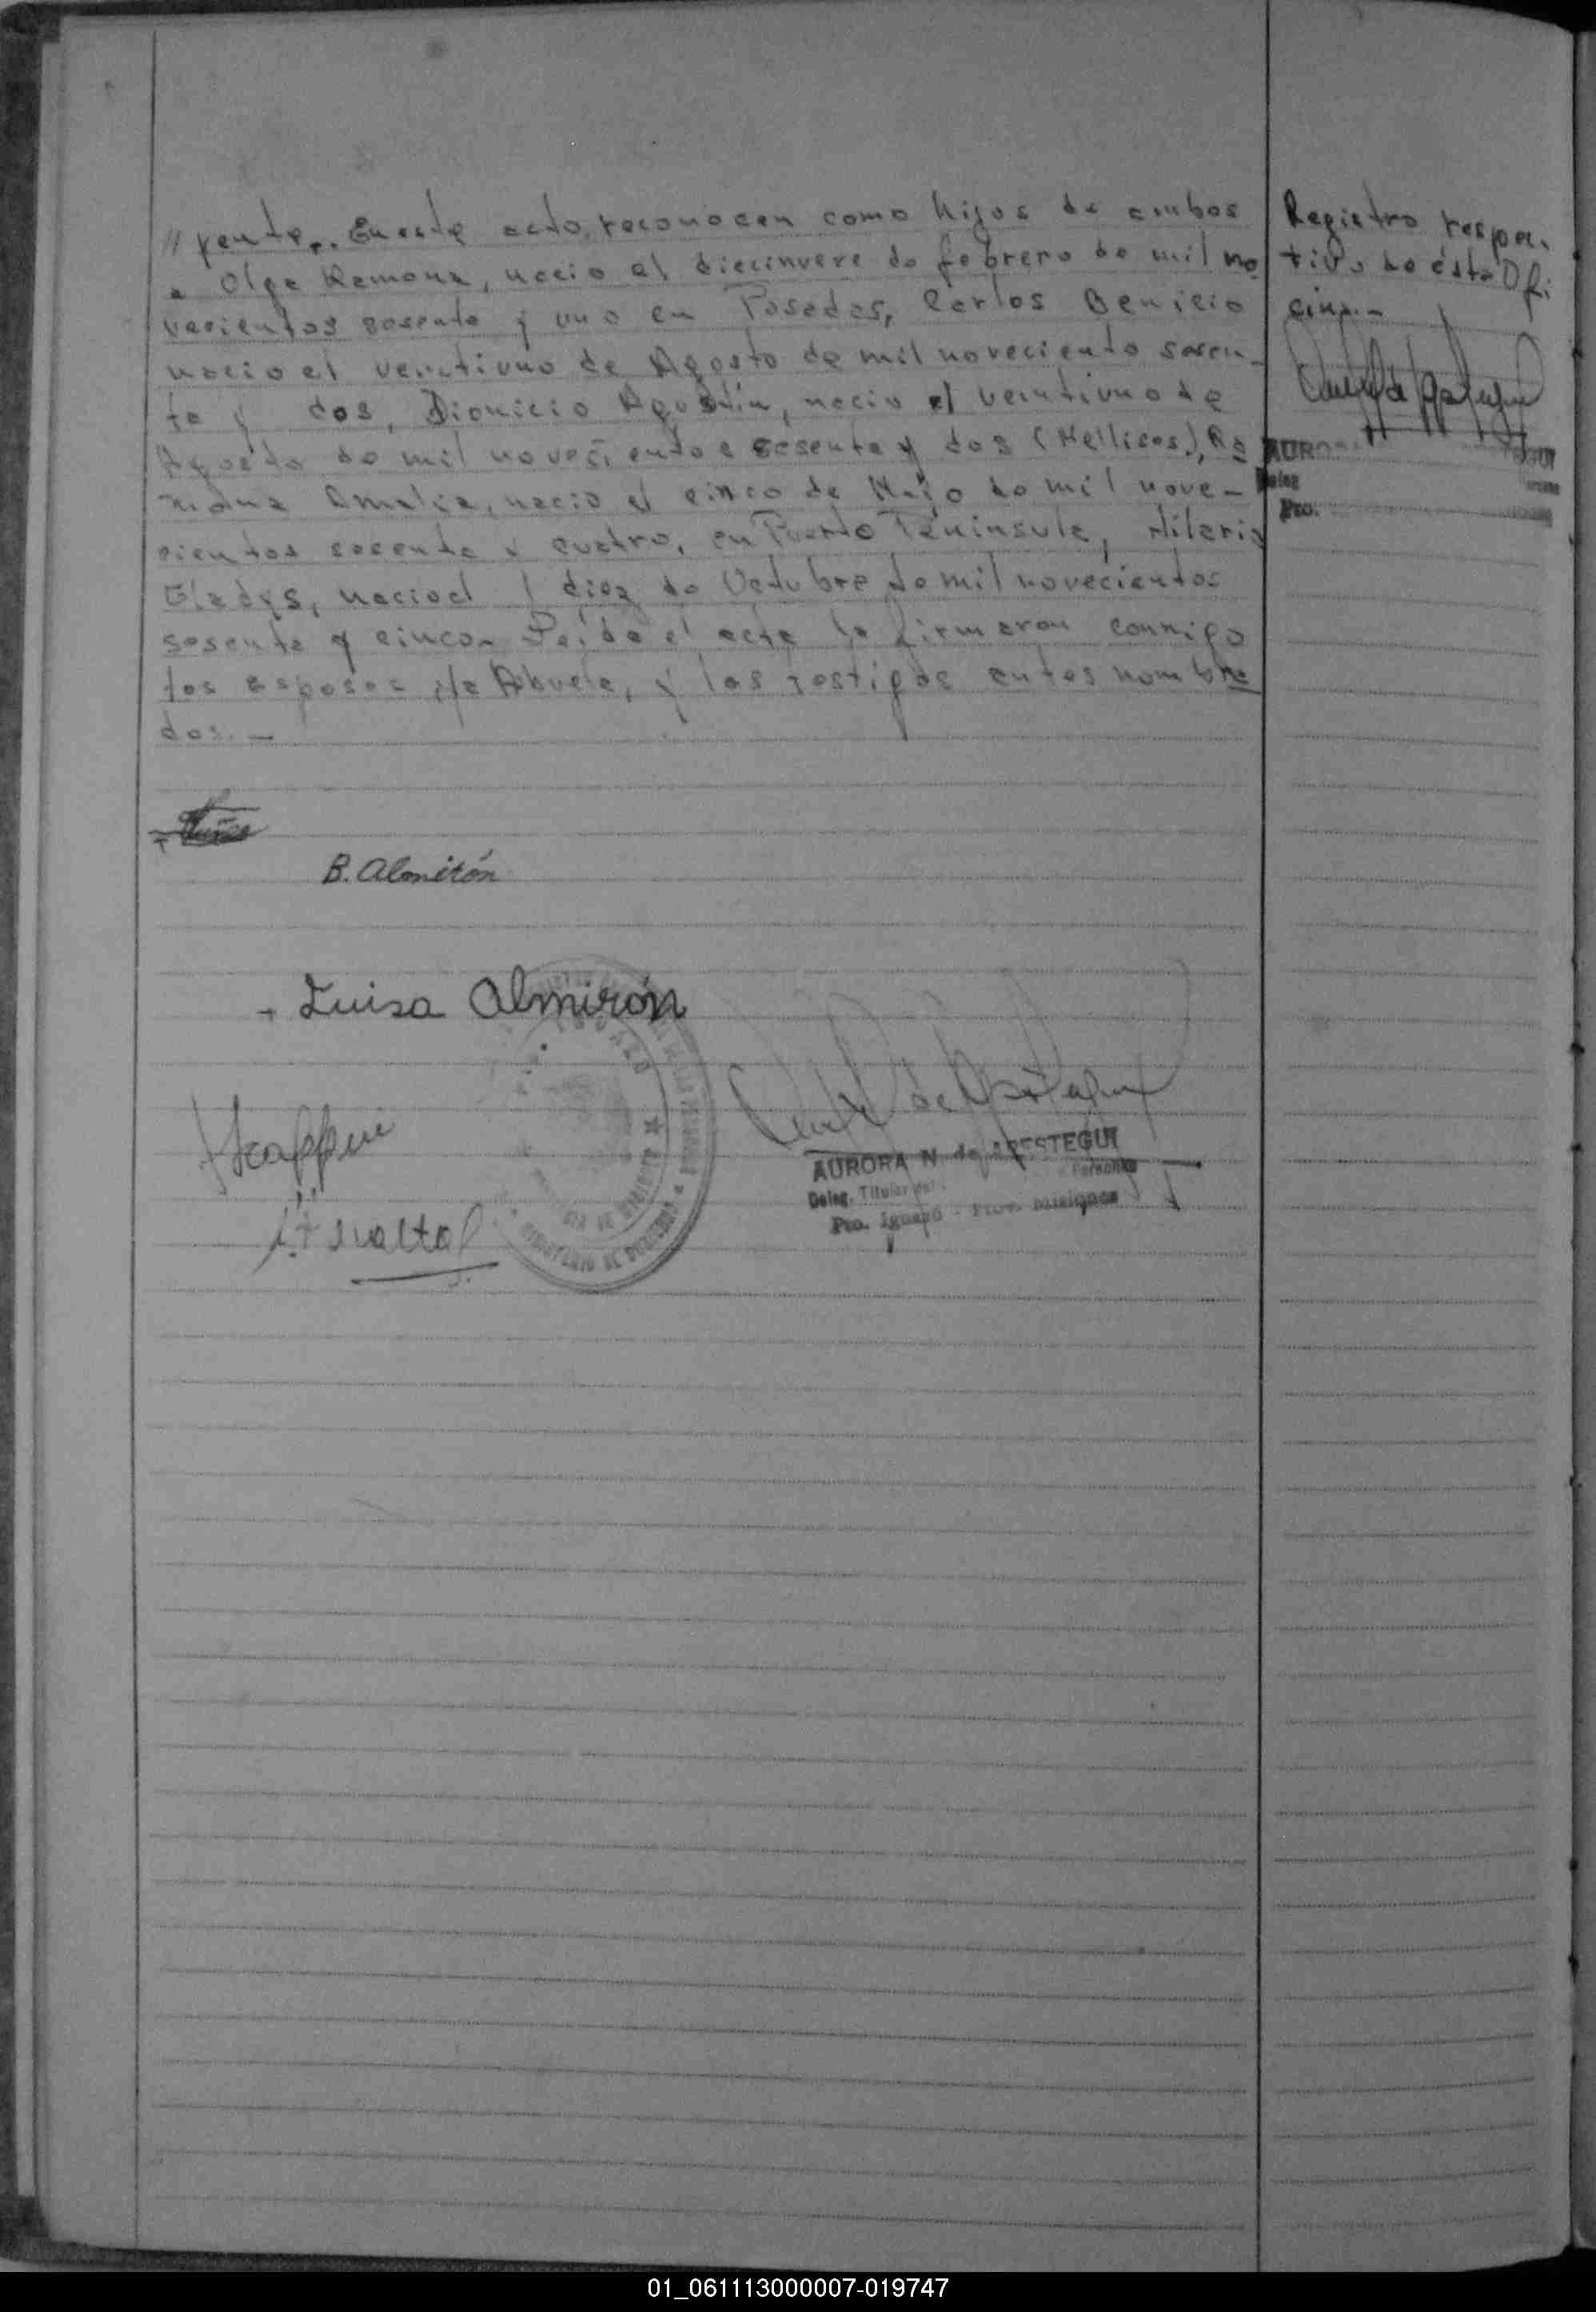 // rente.. En este acto, reconocen como hijos de ambos
a Olga Ramona, nacio el diecinueve de febrero de mil no
vecientos sesenta y uno en Posadas, Carlos Benicio
nacio el veintiuno de Agosto de mil noveciento sesen-
ta y dos, Dionicio Agustin, nacio el veintiuno de
Agosto de mil novecientos sesenta y dos (Mellisos), Ra
mona Amalia, nacio el cinco de Mayo de mil nove-
cientos sesenta y cuatro, en Puerto Peninsula, Hilaria
Gladys, nacio el diez de Octubre de mil novecientos
sesenta y cinco. Leida el acta la firmaron conmigo
los esposos, la Abuela, y los testigos antes nombra
dos.-
Registro respec.
tivo de ésta Ofi
cina.-
AURO
Deleg
Pto.
B. Almirón
Luisa Almirón
AURORA N. de ARESTEGUI
Deleg. Titular del
Pto. Iguazú - Prov. Misiones
01_061113000007-019747